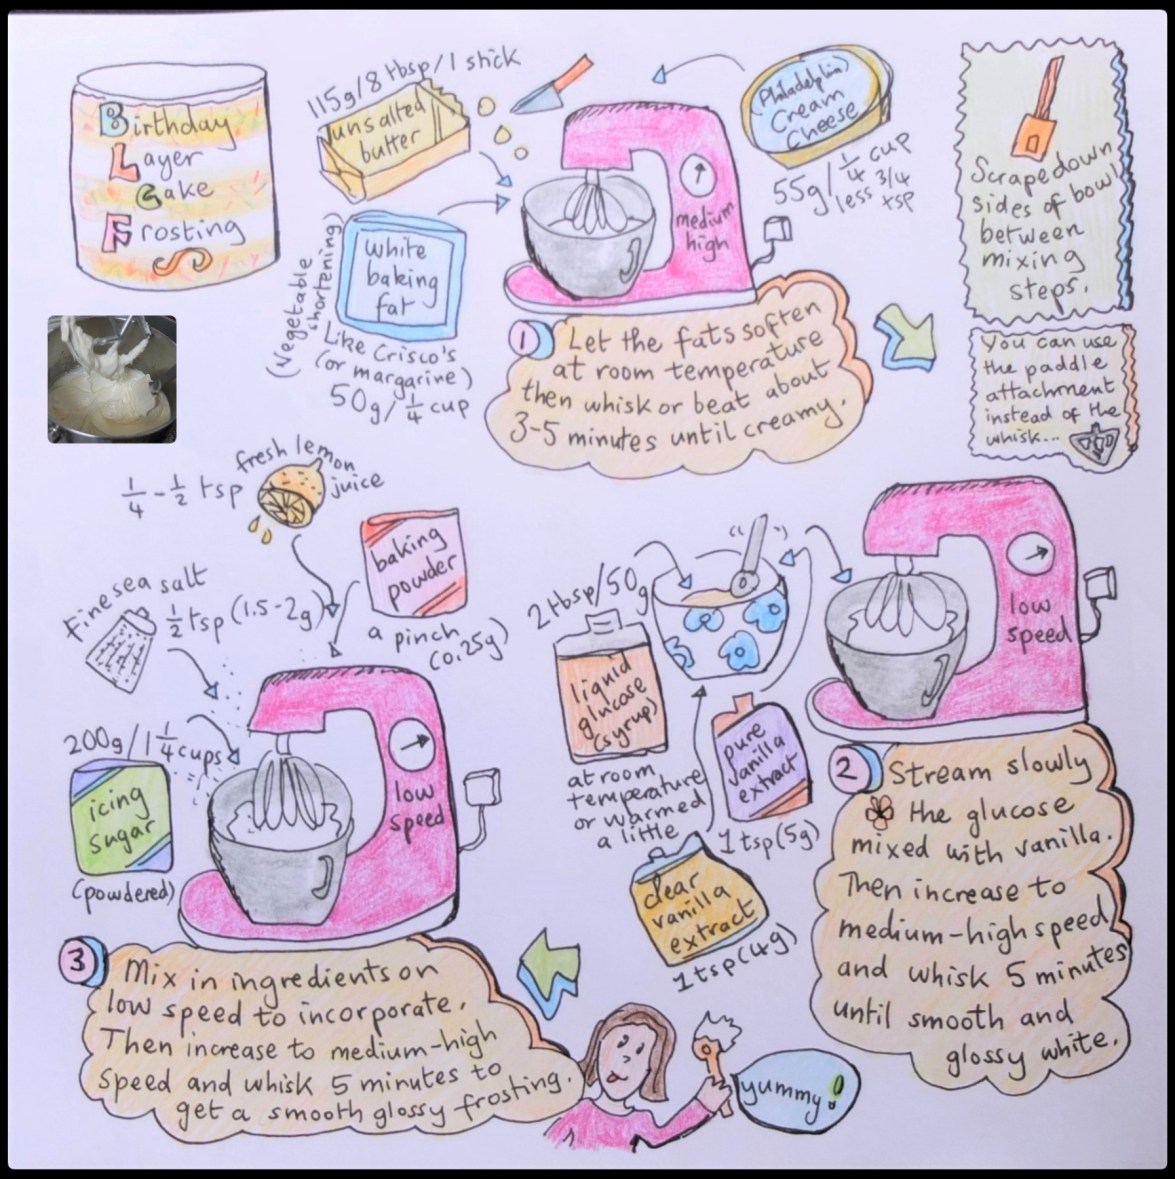 Birthday
Layer
Cake
Frosting
115g/8 tbsp/1 stick
unsalted
butter
Philadelphia
Cream
Cheese
55g/1/4 cup
less 3/4
tsp
white
baking
fat
(vegetable
shortening)
Like Crisco's
(or margarine)
50g/1/4 cup
medium
high
1
Let the fats soften
at room temperature
then whisk or beat about
3-5 minutes until creamy.
Scrape down
sides of bowl
between
mixing
steps.
You can use
the paddle
attachment
instead of the
whisk...
2 tbsp/50g
liquid
glucose
(syrup)
at room
temperature
or warmed
a little
pure
vanilla
extract
1 tsp(5g)
clear
vanilla
extract
1 tsp(4g)
low
speed
2
Stream slowly
the glucose
mixed with vanilla.
Then increase to
medium-high speed
and whisk 5 minutes
until smooth and
glossy white.
1/4 - 1/2 tsp
fresh lemon
juice
baking
powder
a pinch
(0.25g)
Fine sea salt
1/2 tsp (1.5-2g)
200g/1 1/4 cups
icing
sugar
(powdered)
low
speed
3
Mix in ingredients on
low speed to incorporate.
Then increase to medium-high
speed and whisk 5 minutes to
get a smooth glossy frosting.
yummy!